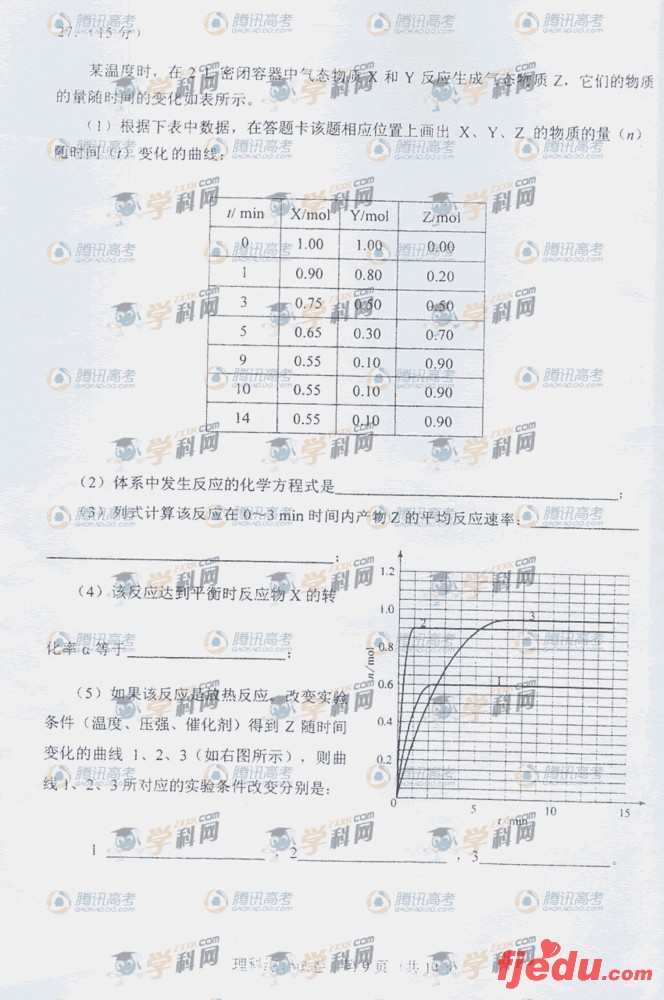 27.（15分）
某温度时，在 2 L 密闭容器中气态物质 X 和 Y 反应生成气态物质 Z，它们的物质
的量随时间的变化如表所示。
（1）根据下表中数据，在答题卡该题相应位置上画出 X、Y、Z 的物质的量（n）
随时间（t）变化的曲线：
t/ min X/mol Y/mol Z/mol
0 1.00 1.00 0.00
1 0.90 0.80 0.20
3 0.75 0.50 0.50
5 0.65 0.30 0.70
9 0.55 0.10 0.90
10 0.55 0.10 0.90
14 0.55 0.10 0.90
（2）体系中发生反应的化学方程式是；
（3）列式计算该反应在 0～3 min 时间内产物 Z 的平均反应速率：
；
（4）该反应达到平衡时反应物 X 的转
化率 α 等于；
（5）如果该反应是放热反应。改变实验
条件（温度、压强、催化剂）得到 Z 随时间
变化的曲线 1、2、3（如右图所示），则曲
线 1、2、3 所对应的实验条件改变分别是：
1.2
1.0
0.8
0.6
0.4
0.2
0
n/mol
2
3
1
5 10 15
t/min
1 ，2 ，3 。
腾讯高考
GAOKAO.QQ.COM
学科网
ZXXK.COM
fjedu.com